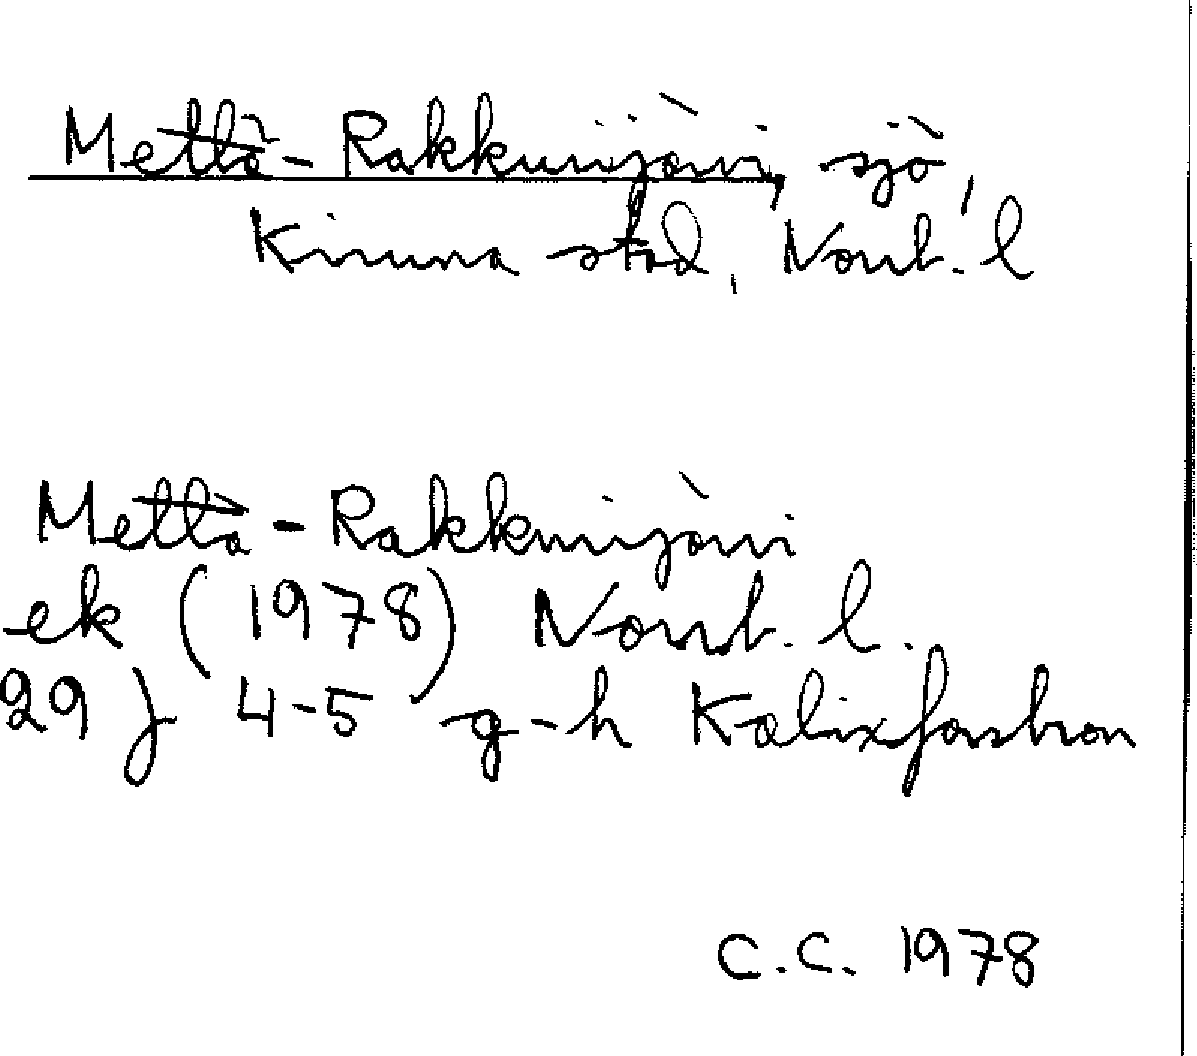 Mettä-Rakkurijärvi, sjö,
Kiruna stad, Norrb. l
Mettä-Rakkurijärvi
ek (1978) Norrb. l.
29 J 4-5 g-h Kalixforsbron
C.C. 1978